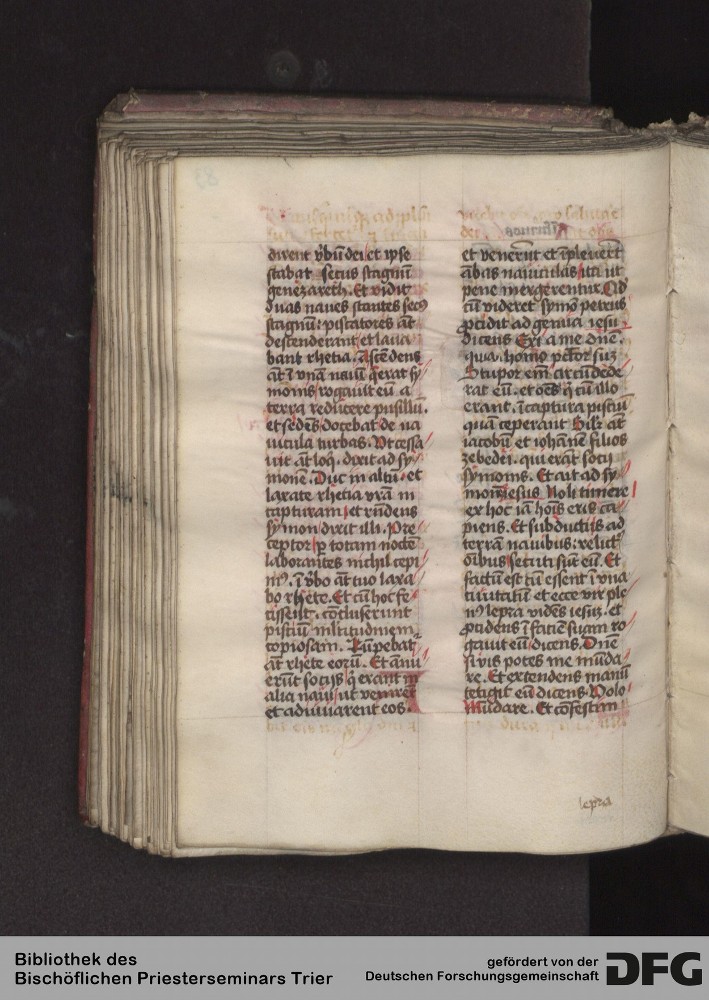 dirent v̄bū dei et ipse
stabat secus stagnū
genezareth. Et vidit
duas naues stantes secꝰ
stagnū: piscatores āt
descenderant et laua
bant rhetia. Ascēdens
āt ī vnā nauū q̄ erat sy
monis rogauit eū a
terra reducere pusillū.
et sedēs docebat de na
uicula turbas. Vt cessa
uit āt loqͥ. dixit ad sy
monē. Duc in altū et
laxate rhetia vr̄a in
capturam et rn̄dens
symon dixit illi. Pre
ceptor ꝑ totam noctē
laborantes nichil cepi
mꝰ. ī v̄bo āt tuo laxa
bo rhete. Et cū hoc fe
cissent. cōcluserunt
pisciū ml̄titudinem
copiosam. Rūpebat̄
āt rhete eorū. Et ānu
erūt socijs q̄ erant in
alia naui ut venirēt
et adiuuarent eos.
et venerūt et īpleuerūt
ābas nauiculas ita ut
pene mergerentur. Qd̄
cū videret symō petrus
ꝓcidit ad genua iesu
dicens Exi a me dn̄e.
quia homo pctōr suȝ
Stupor em̄ circūdede
rat eū. et oēs q̄ cū illo
erant. ī captura pisciū
quā ceperant Silr̄ āt
iacobū et iohānē filios
zebedei. qui erāt socij
symonis. Et ait ad sy
monē iesus. Noli timere
ex hoc iā hoīes eris ca
piens. Et subductis ad
terrā nauibus: relictͥ
oībus secuti sūt eū. Et
factū est cū essent ī vna
ciuitatū et ecce vir ple
nꝰ lepra vidēs iesuȝ. et
ꝓcidens ī faciē suam ro
gauit eū dicens. Dn̄e
si vis potes me mūda
re. Et extendens manū
tetigit eū dicens. Volo
Mūdare. Et cōfestim
lepra
Bibliothek des
Bischöflichen Priesterseminars Trier
gefördert von der
Deutschen Forschungsgemeinschaft
DFG